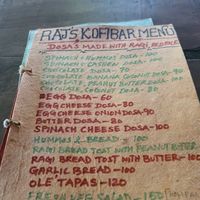 RAJ'S KOFIBAR MENU
DOSA'S MADE WITH RAGI
SPINACH + HUMMUS DOSA - 100
SPINACH + CASHEW DOSA - 100
CHOCOLATE DOSA - 70
CHOCOLATE BANANA COCONUT DOSA-90
CHOCOLATE, PEANUT BUTTER DOSA-100
CHOCOLATE, COCONUT DOSA-80
EGG DOSA-60
EGG CHEESE DOSA-80
EGG CHEESE ONION DOSA-90
BUTTER DOSA-80
SPINACH CHEESE DOSA-100
HUMMUS & BREAD-100
RAGI BREAD TOST WITH PEANUT BUTTER
RAGI BREAD TOST WITH BUTTER-100
GARLIC BREAD-100
OLE TAPAS-120
SALAD-150